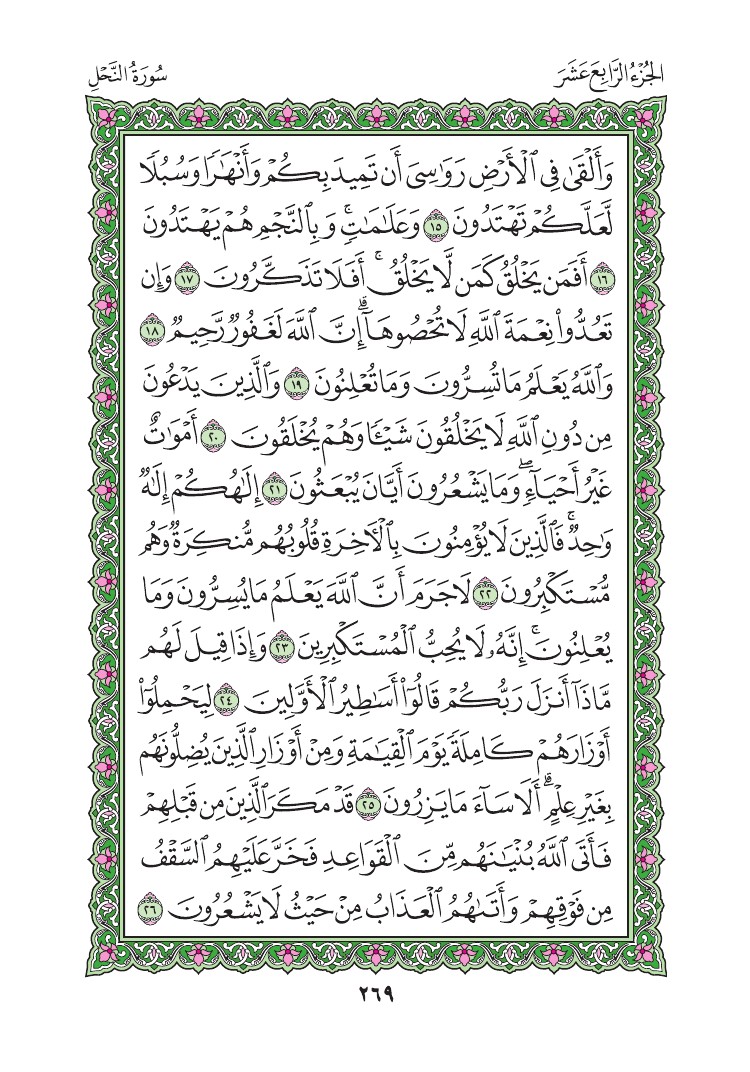 الجُزْءُ الرَّابِعَ عَشَرَ
سُورَةُ النَّحْلِ
وَأَلْقَىٰ فِي ٱلْأَرْضِ رَوَٰسِيَ أَن تَمِيدَ بِكُمْ وَأَنْهَٰرًا وَسُبُلًا
لَّعَلَّكُمْ تَهْتَدُونَ ١٥ وَعَلَٰمَٰتٍۚ وَبِٱلنَّجْمِ هُمْ يَهْتَدُونَ
١٦ أَفَمَن يَخْلُقُ كَمَن لَّا يَخْلُقُۚ أَفَلَا تَذَكَّرُونَ ١٧ وَإِن
تَعُدُّوا۟ نِعْمَةَ ٱللَّهِ لَا تُحْصُوهَآۗ إِنَّ ٱللَّهَ لَغَفُورٌ رَّحِيمٌ ١٨
وَٱللَّهُ يَعْلَمُ مَا تُسِرُّونَ وَمَا تُعْلِنُونَ ١٩ وَٱلَّذِينَ يَدْعُونَ
مِن دُونِ ٱللَّهِ لَا يَخْلُقُونَ شَيْـًٔا وَهُمْ يُخْلَقُونَ ٢٠ أَمْوَٰتٌ
غَيْرُ أَحْيَآءٍۖ وَمَا يَشْعُرُونَ أَيَّانَ يُبْعَثُونَ ٢١ إِلَٰهُكُمْ إِلَٰهٌ
وَٰحِدٌۚ فَٱلَّذِينَ لَا يُؤْمِنُونَ بِٱلْءَاخِرَةِ قُلُوبُهُم مُّنكِرَةٌ وَهُم
مُّسْتَكْبِرُونَ ٢٢ لَا جَرَمَ أَنَّ ٱللَّهَ يَعْلَمُ مَا يُسِرُّونَ وَمَا
يُعْلِنُونَۚ إِنَّهُۥ لَا يُحِبُّ ٱلْمُسْتَكْبِرِينَ ٢٣ وَإِذَا قِيلَ لَهُم
مَّاذَآ أَنزَلَ رَبُّكُمْ قَالُوٓا۟ أَسَٰطِيرُ ٱلْأَوَّلِينَ ٢٤ لِيَحْمِلُوٓا۟
أَوْزَارَهُمْ كَامِلَةً يَوْمَ ٱلْقِيَٰمَةِ وَمِنْ أَوْزَارِ ٱلَّذِينَ يُضِلُّونَهُم
بِغَيْرِ عِلْمٍۗ أَلَا سَآءَ مَا يَزِرُونَ ٢٥ قَدْ مَكَرَ ٱلَّذِينَ مِن قَبْلِهِمْ
فَأَتَى ٱللَّهُ بُنْيَٰنَهُم مِّنَ ٱلْقَوَاعِدِ فَخَرَّ عَلَيْهِمُ ٱلسَّقْفُ
مِن فَوْقِهِمْ وَأَتَىٰهُمُ ٱلْعَذَابُ مِنْ حَيْثُ لَا يَشْعُرُونَ ٢٦
٢٦٩